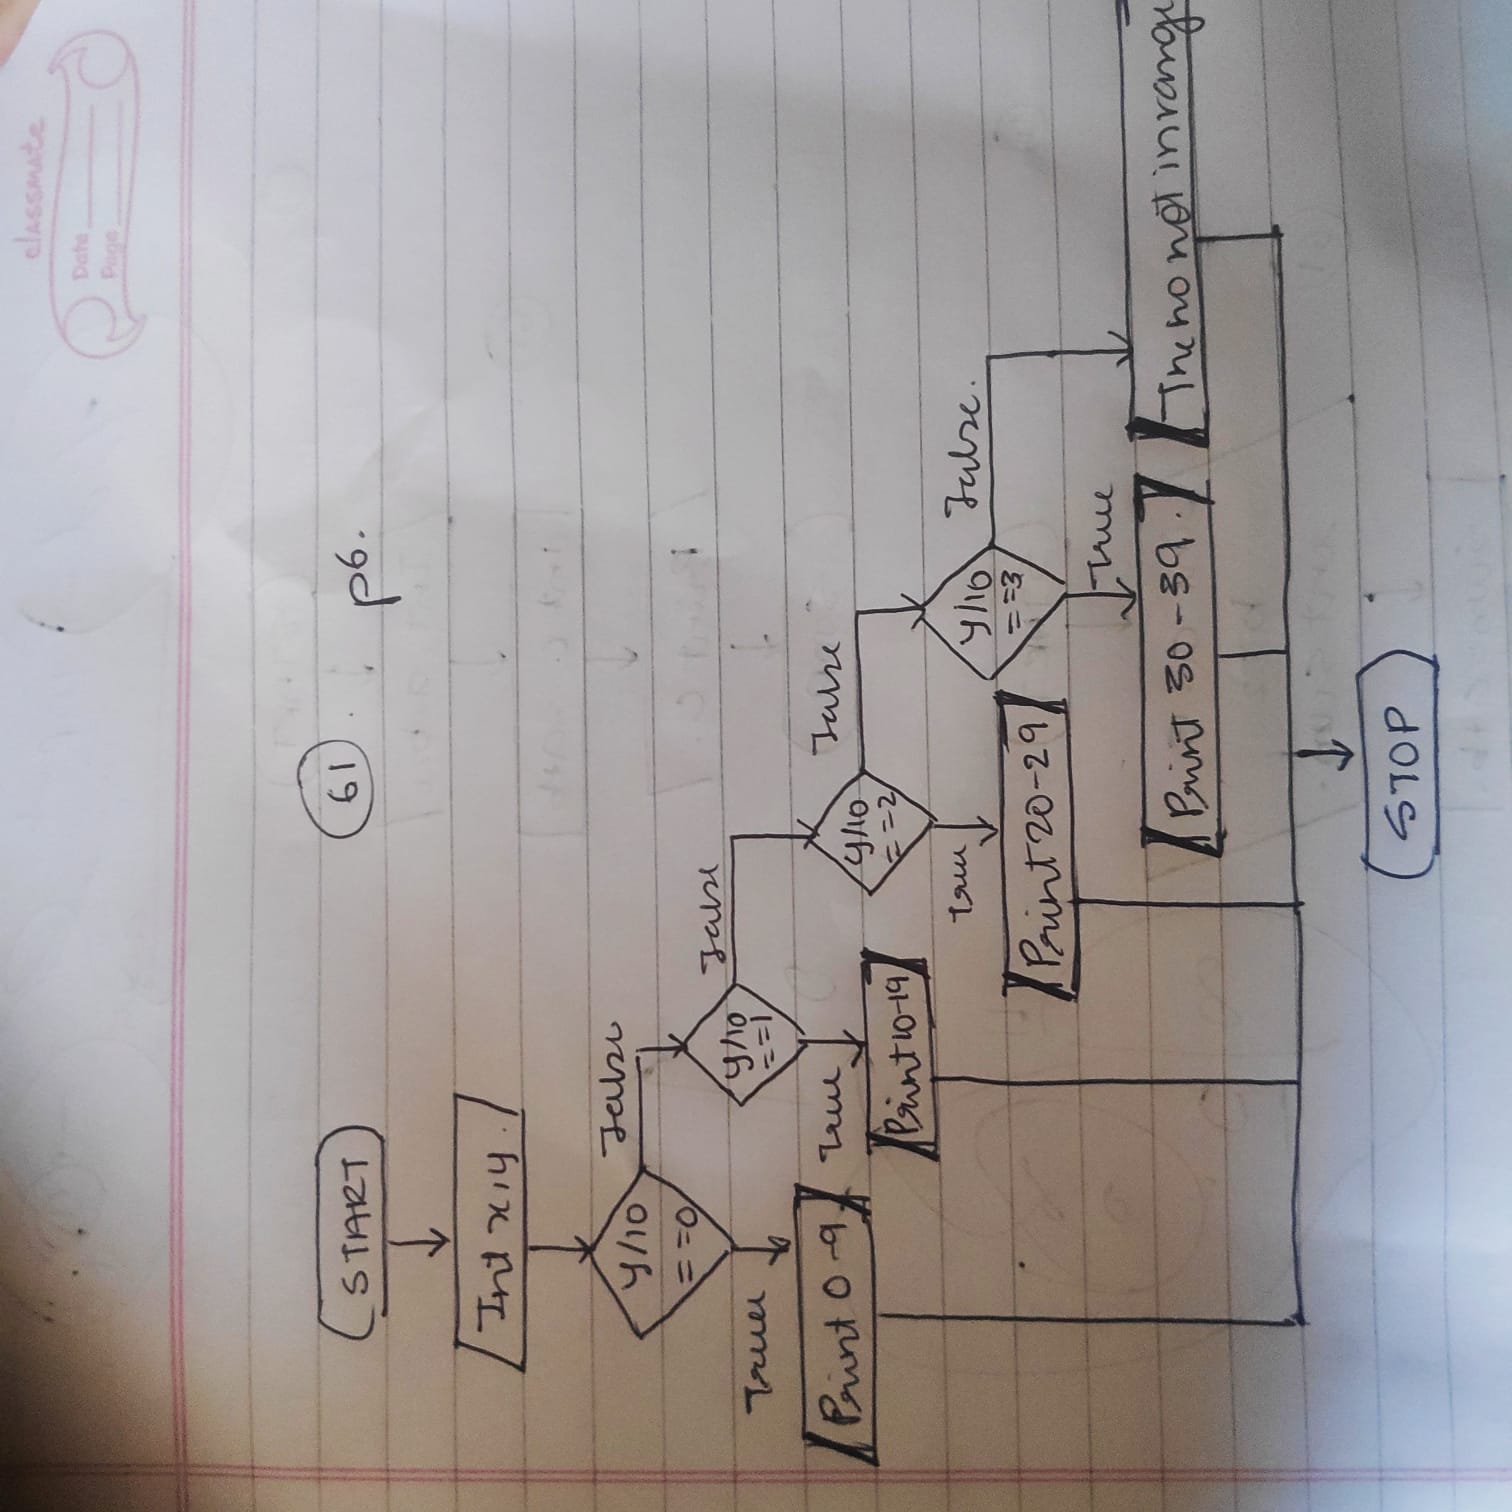 classmate
Date
Page
61
p6.
START
Int x,y.
Y/10
==0
False
True
Print 0-9
y/10
==1
False
True
Print 10-19
y/10
==2
False
True
Print 20-29
y/10
==3
False.
True
Print 30-39.
The no not in range
STOP